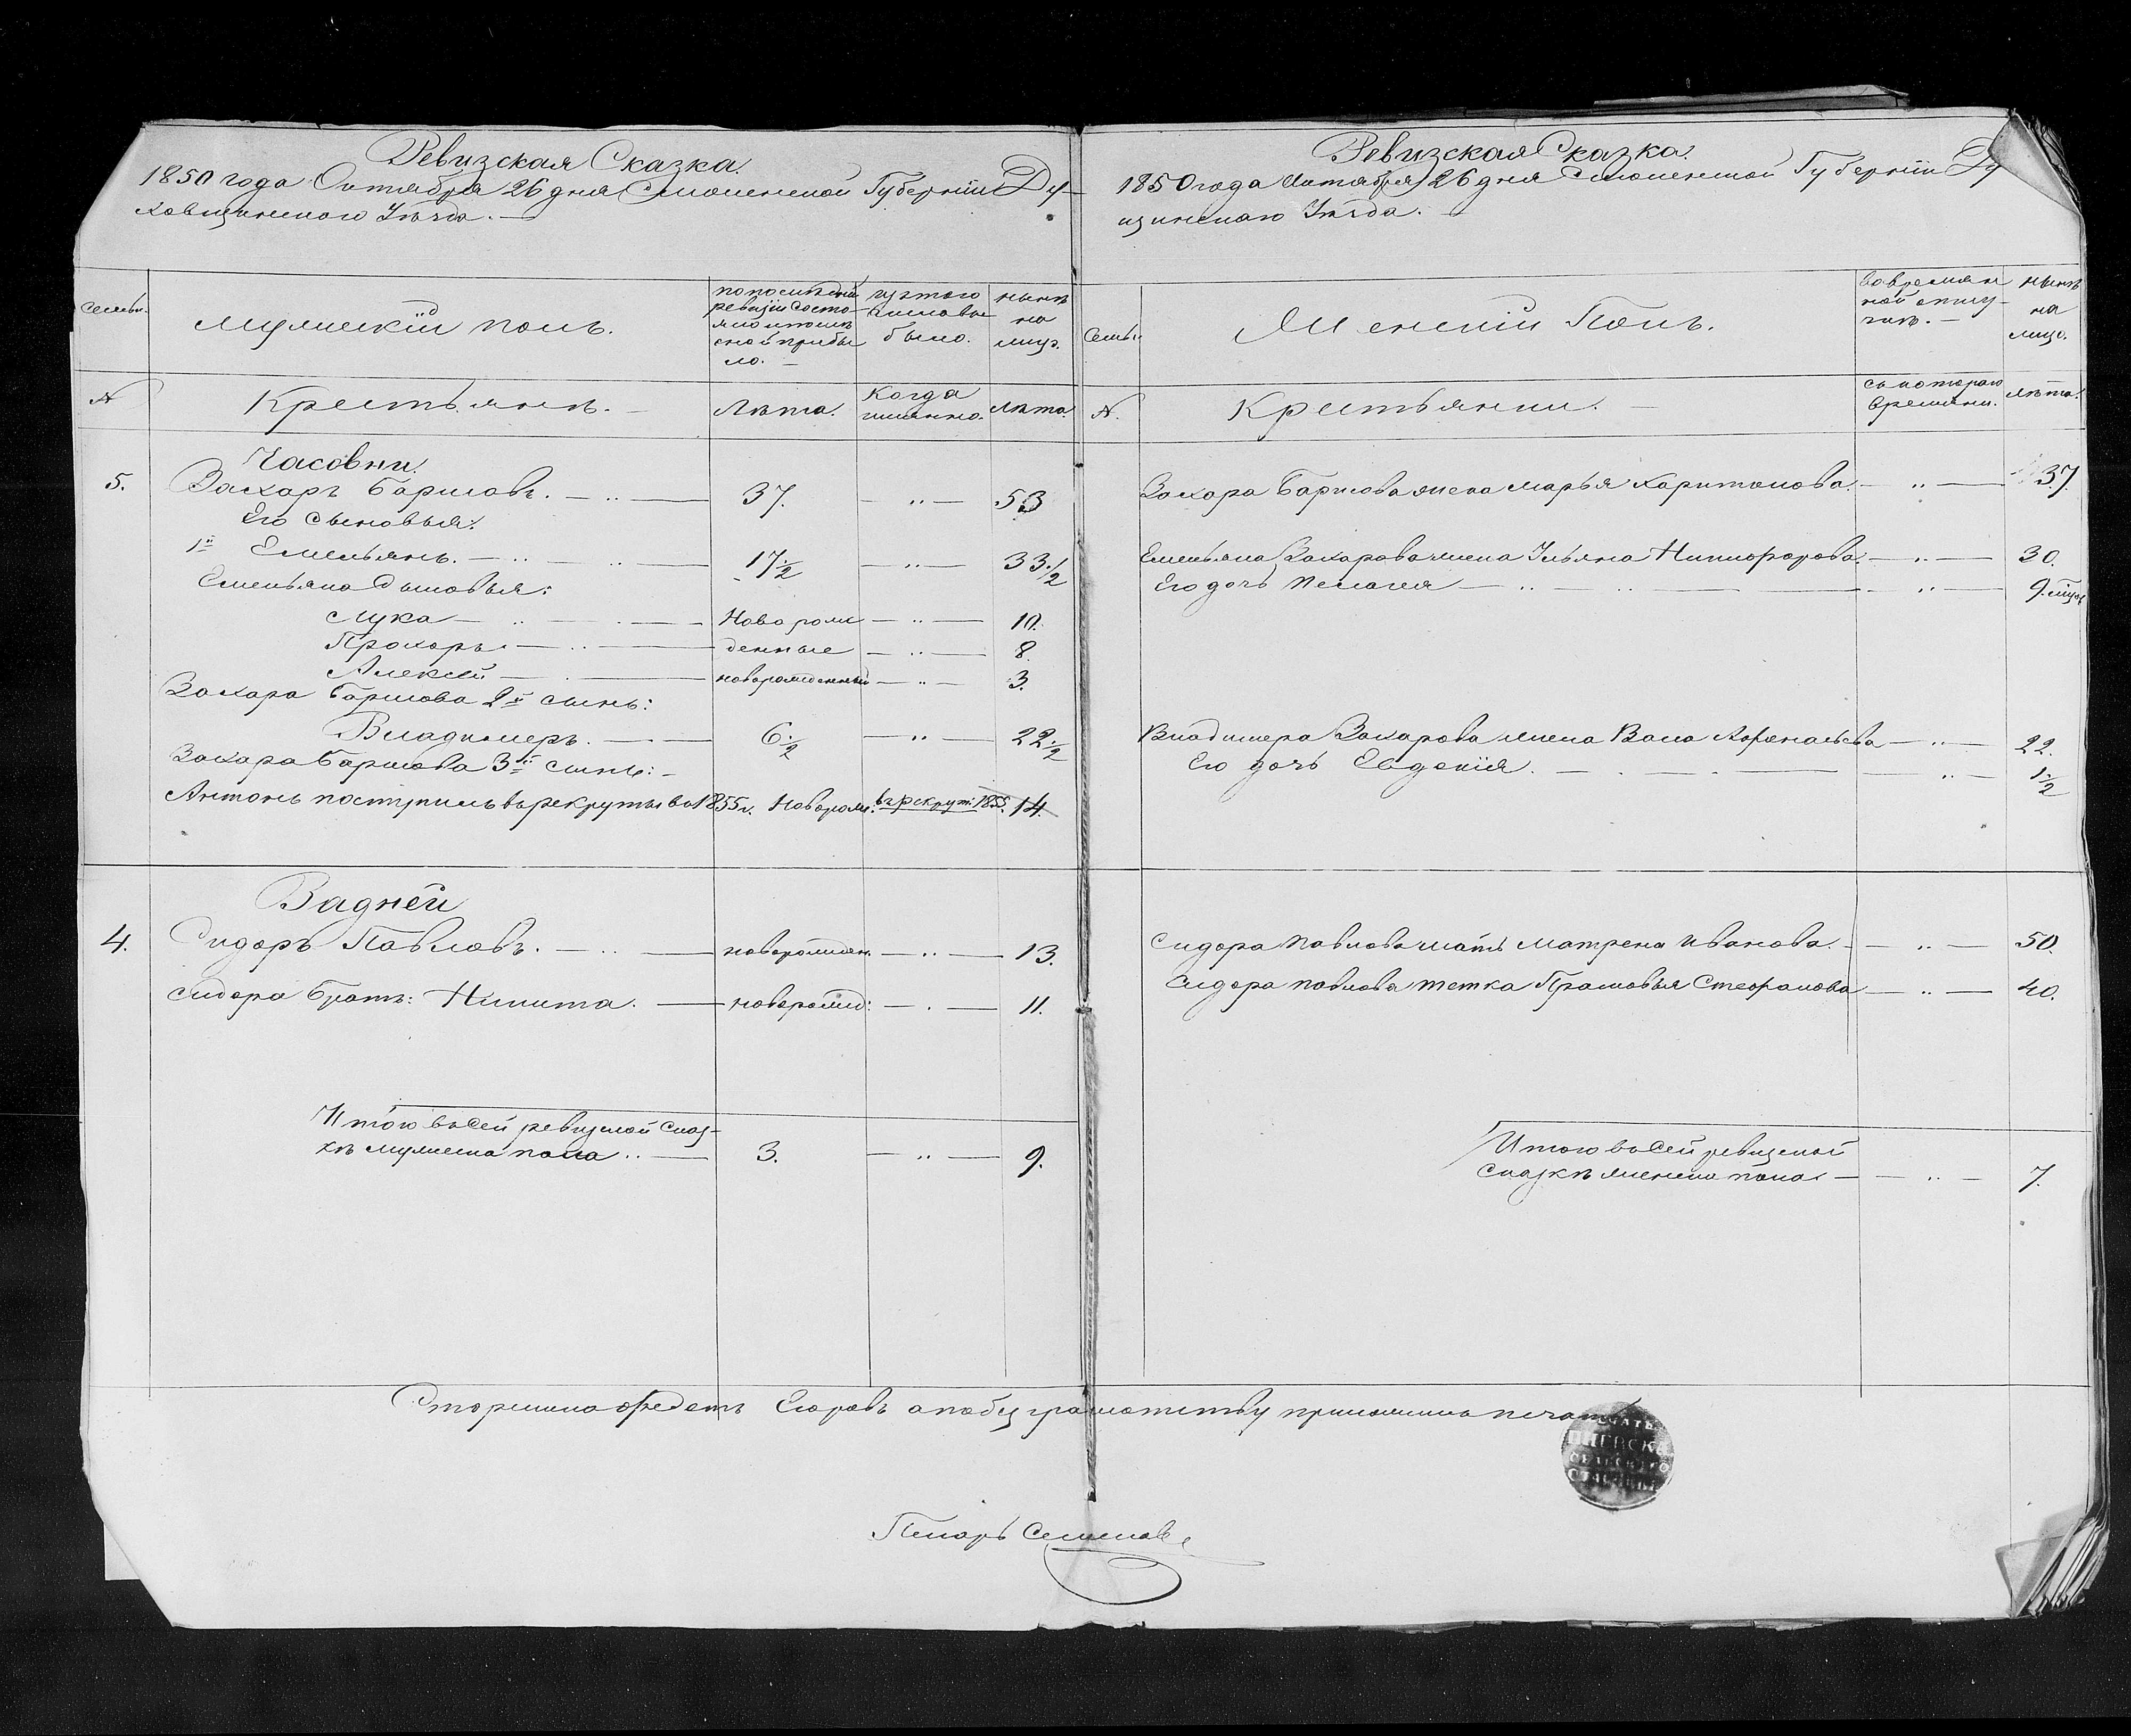 Ревизская Сказка.
1850 года Октября 26 дня Смоленской Губернiи Ду-
ховщинскаго Уѣзда.
Семьи.
Мужескiй полъ.
по последней
ревизiи состо-
яло и после
оной прибы
ло.
изъ того
числа вы
было.
нынѣ
на
лицо.
№
Крестьяне.
Лѣта.
Когда
имянно.
Лѣта.
Часовни.
5. Захаръ Барисовъ. 37. 53
Его сыновья:
1й Емельянъ. 17 1/2 33 1/2
Емельяна сыновья:
Лука Новорож 10.
Прохоръ денные 8.
Алексей новорожденный 3.
Захара Барисова 2й сынъ:
Владимеръ. 6 1/2 22 1/2
Захара Барисова 3й сынъ:
Антонъ поступилъ въ рекруты въ 1855 г. Новорож. въ рекрут. 1855. 14.
Задней
4. Сидоръ Павловъ. новорожден. 13.
Сидора братъ: Никита. новорожд: 11.
Итого въ сей ревизской сказ-
кѣ мужеска пола 3. 9.
Ревизская Сказка.
1850 года Октября 26 дня Смоленской Губернiи Ду
щинскаго Уѣзда.
Семьи
Женскiй Полъ.
во времян
ной отлу-
чкѣ.
нынѣ
на
лицо.
№.
Крестьянки.
съ котораго
времяни.
лѣта.
Захара Барисова жена Марья Харитонова. 37.
Емельяна Захарова жена Ульяна Никифорова. 30.
Его дочь Пелагея 9.
Владимера Захарова жена Васа Афанасьева 22.
Его дочь Евдокiя. 1 1/2
Сидора Павлова мать Матрена Иванова. 50.
Сидора Павлова тетка Прасковья Стефанова 40.
Итого въ сей ревизской
сказкѣ женска пола 7.
Старшина Федотъ Егоровъ а по безграмотству приложилъ печать
Писарь Семеновъ